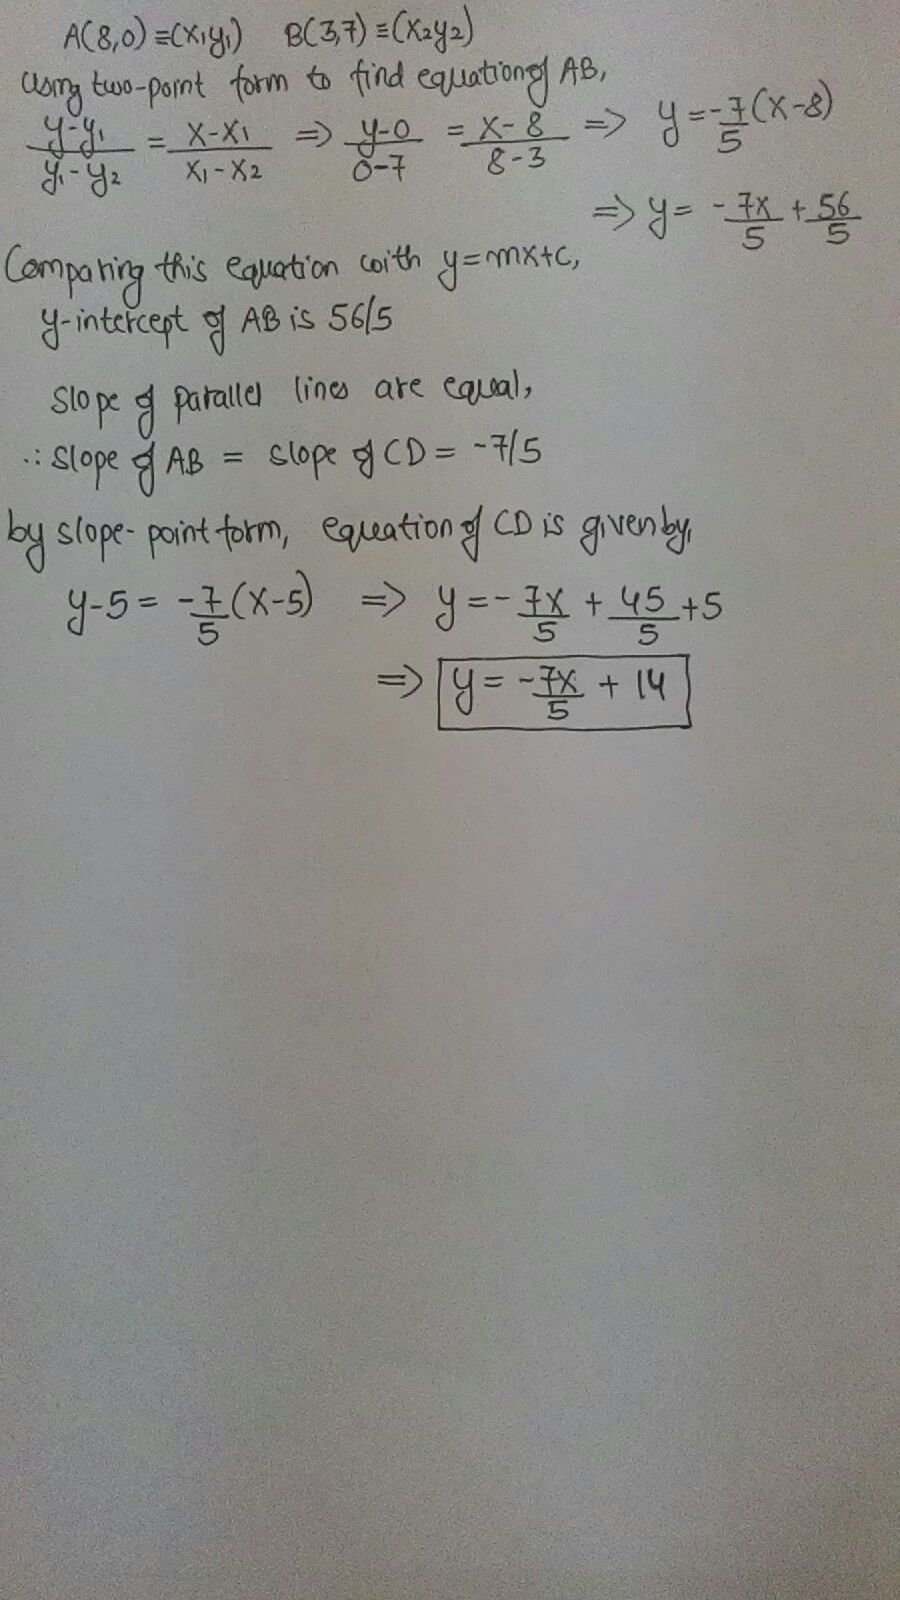 A(8,0) ≡(x₁y₁) B(3,7) ≡(x₂y₂)
Using two-point form to find equation of AB,
(y-y₁)/(y₁-y₂) = (x-x₁)/(x₁-x₂) ⇒ (y-0)/(0-7) = (x-8)/(8-3) ⇒ y=-7/5(x-8)
⇒ y= -7x/5 + 56/5
Comparing this equation with y=mx+c,
y-intercept of AB is 56/5
Slope of parallel lines are equal,
∴ slope of AB = slope of CD = -7/5
by slope-point form, equation of CD is given by,
y-5= -7/5(x-5) ⇒ y=-7x/5 + 45/5 +5
⇒ y= -7x/5 + 14